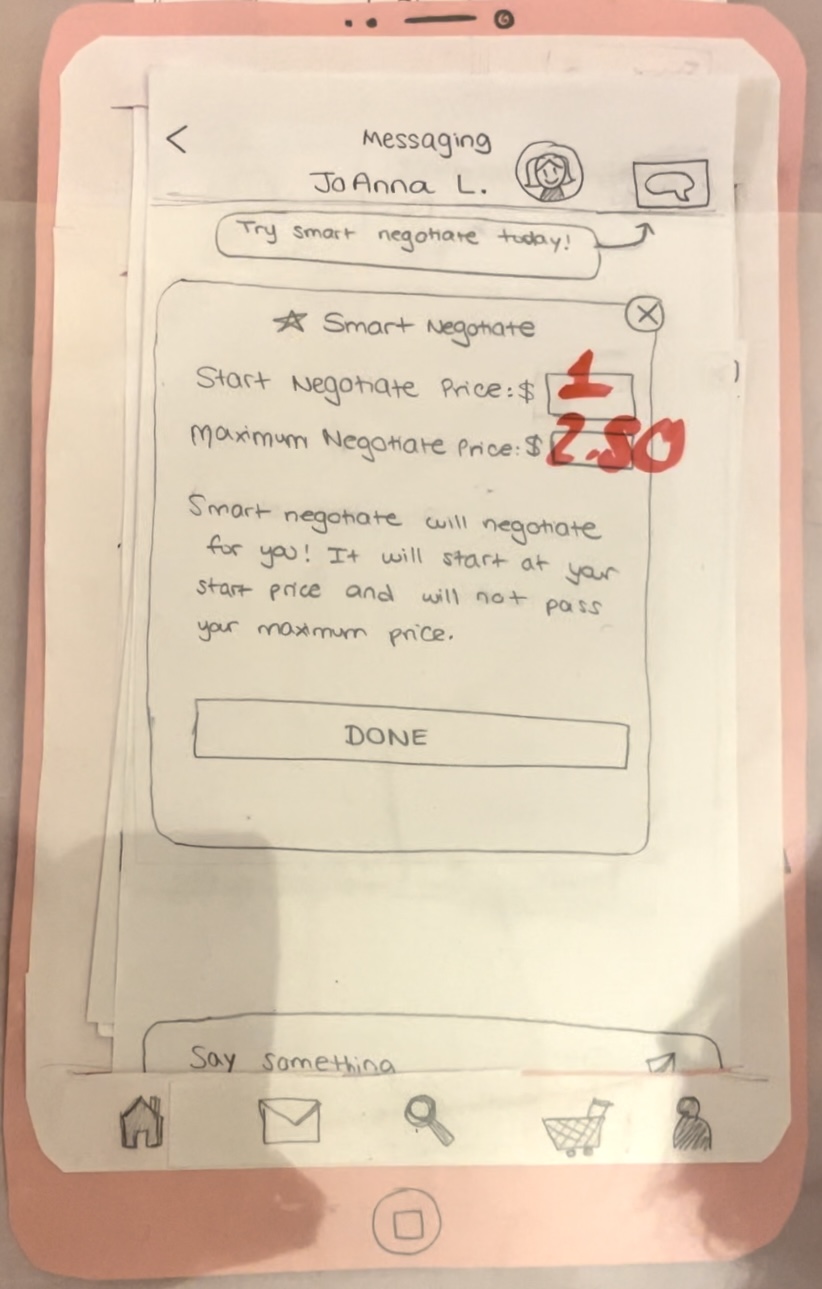 Messaging
JoAnna L.
Try smart negotiate today!
Smart Negotiate
Start Negotiate Price: $ 1
Maximum Negotiate Price: $ 2.50
Smart negotiate will negotiate
for you! It will start at your
start price and will not pass
your maximum price.
DONE
Say something